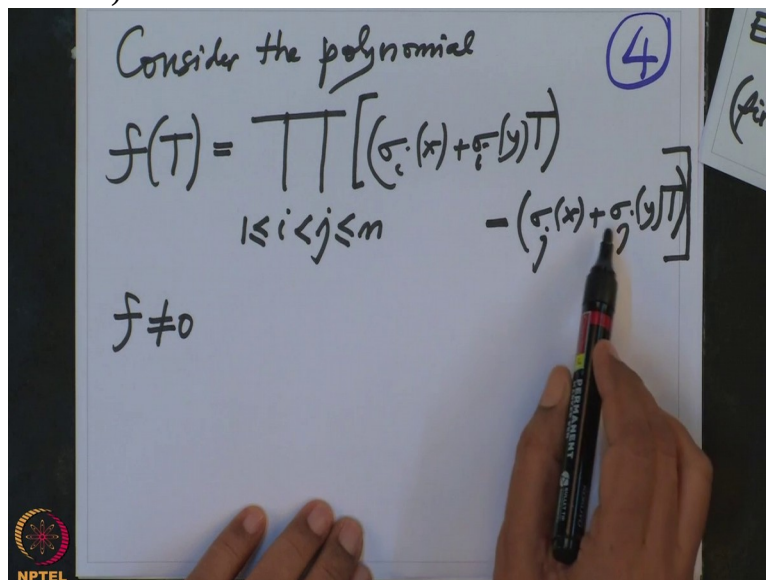 Consider the polynomial
4
f(T) = ∏ [(σ_i(x) + σ_i(y)T)
1≤i<j≤n
- (σ_j(x) + σ_j(y)T)]
f ≠ 0
PERMANENT
NPTEL